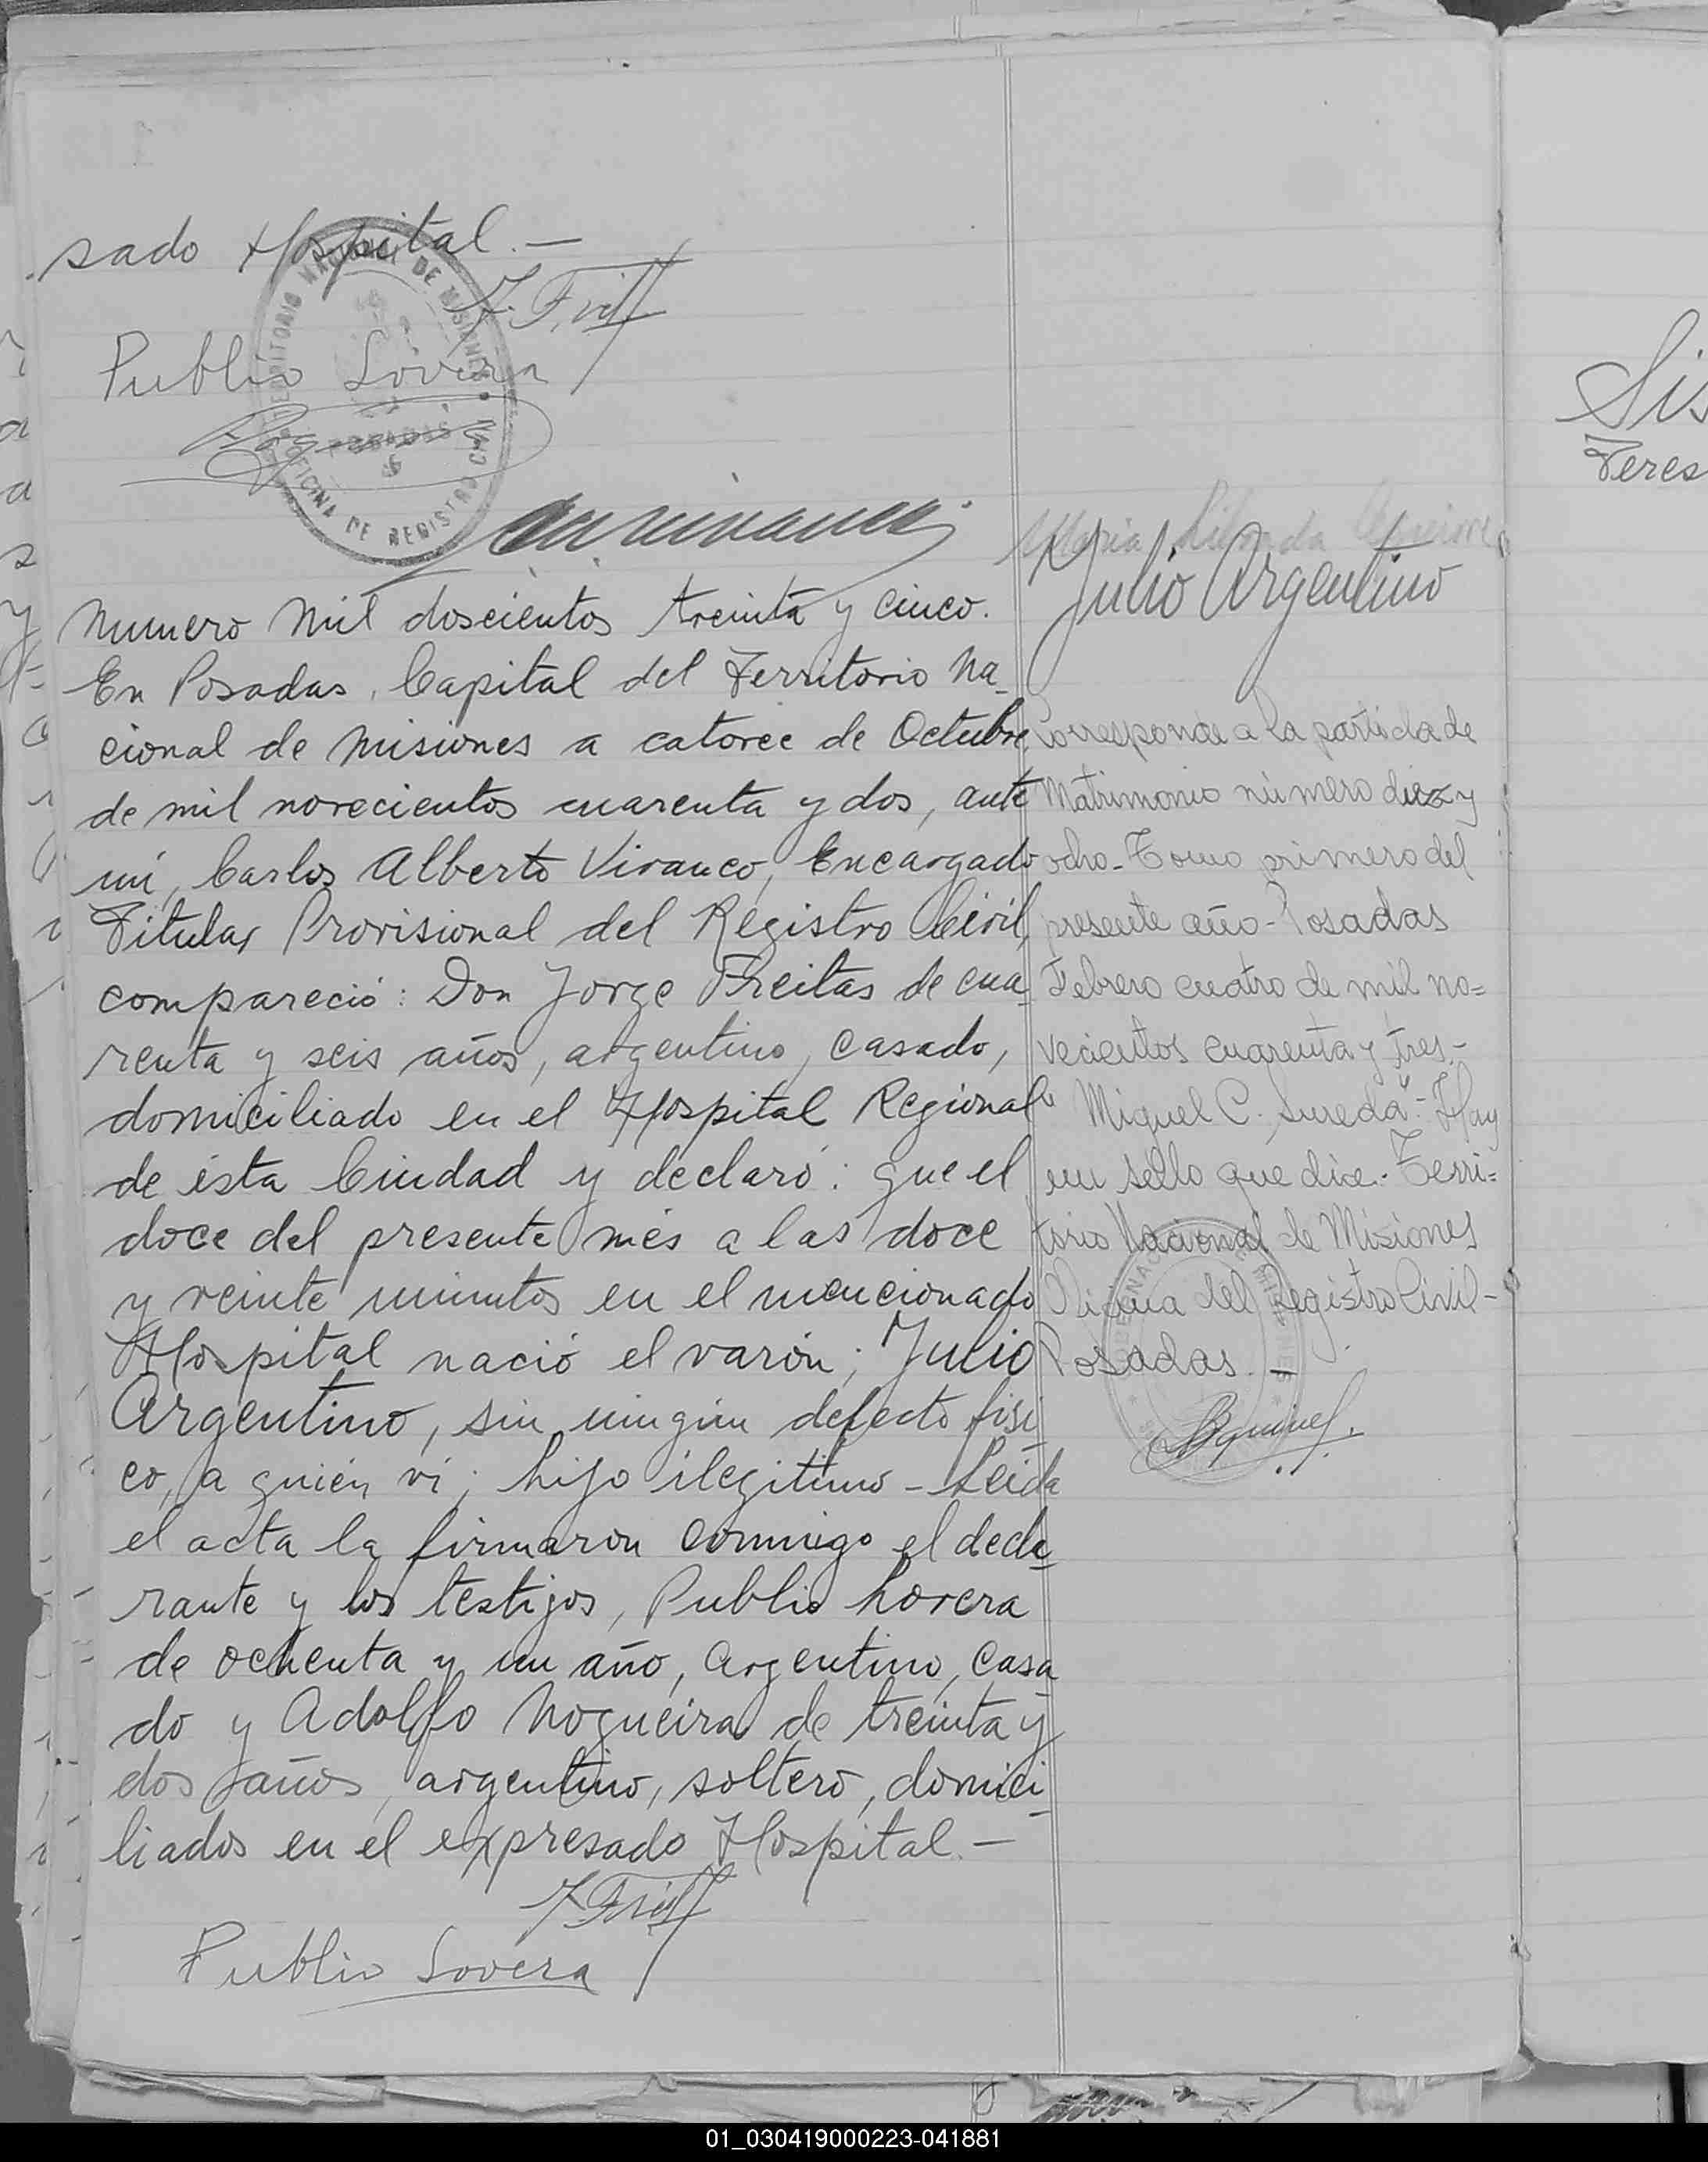 sado Hospital.—
Publio Lovera
TERRITORIO NACIONAL DE MISIONES
POSADAS
OFICINA DE REGISTRO CIVIL
Julio Argentino
Numero mil doscientos treinta y cinco.
En Posadas, Capital del Territorio Na-
cional de Misiones a catorce de Octubre
de mil novecientos cuarenta y dos, ante
mí, Carlos Alberto Vivanco, Encargado
Titular Provisional del Registro Civil,
compareció: Don Jorge Freitas de cua-
renta y seis años, argentino, casado,
domiciliado en el Hospital Regional
de ésta Ciudad y declaró: que el
doce del presente més a las doce
y veinte minutos en el mencionado
Hospital nació el varón; Julio
Argentino, sin ningún defecto físi-
co, a quién ví; hijo ilegitimo - Leida
el acta la firmaron conmigo el decla-
rante y los testigos, Publio Lovera
de ochenta y un año, Argentino, casa-
do y Adolfo Nogueira de treinta y
dos años, argentino, soltero, domici-
liados en el expresado Hospital.—
Publio Lovera
Corresponde a la partida de
Matrimonio número diez y
ocho - Tomo primero del
presente año - Posadas
Febrero cuatro de mil no=
vecientos cuarenta y tres.-
"Miguel C. Sureda".- Hay
un sello que dice.- Terri=
torio Nacional de Misiones
Oficina del Registro Civil -
Posadas. -
Sis
Teres
01_030419000223-041881